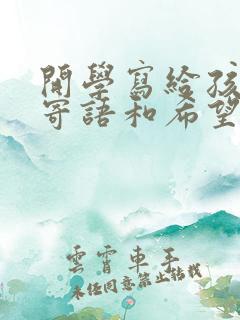 開學寫給孩
寄語和希望
雲霄車手
未经同意禁止转载